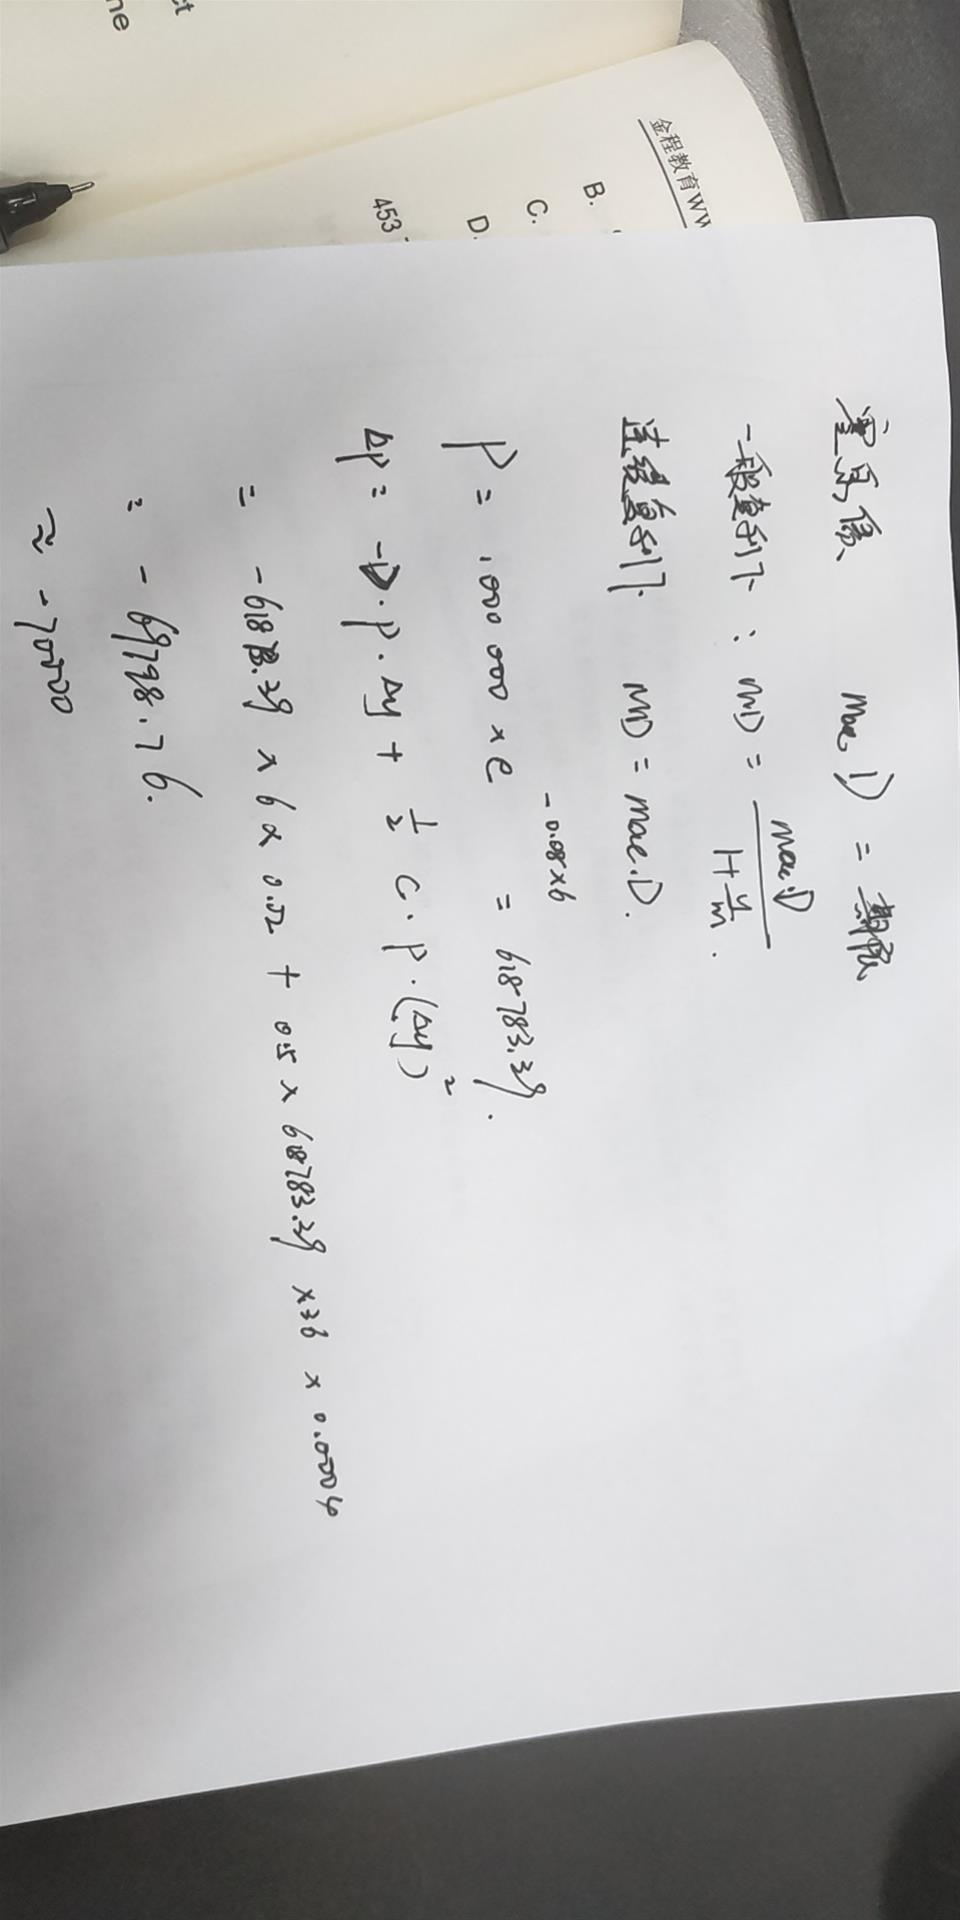 零息债 mac.D = 期限
一般复利下: MD = mac.D / 1+y/m .
连续复利下 MD = mac.D.
P = 1000 000 × e^-0.08×6 = 618 783.39.
ΔP = -D·P·Δy + 1/2 C·P·(Δy)²
= -61878.39 × 6 × 0.02 + 0.5 × 618783.39 × 36 × 0.0004
= - 69798.76.
≈ -70000
金程教育WW
B.
C.
D.
453
ct
ne